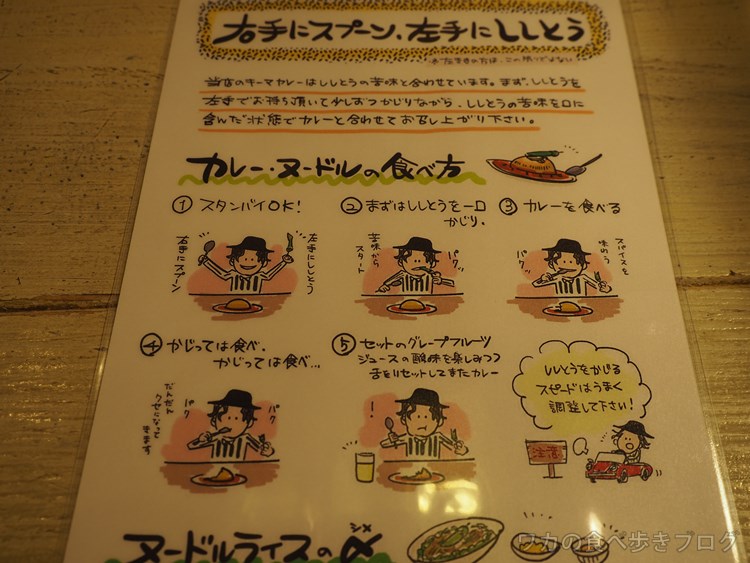 右手にスプーン、左手にししとう
当店のキーマカレーはししとうの苦味と合わせています。まず、ししとうを
左手でお持ち頂いて少しずつかじりながら、ししとうの苦味を口に
含んだ状態でカレーと合わせてお召し上がり下さい。
カレー・ヌードルの食べ方
① スタンバイOK!
右手にスプーン
左手にししとう
② まずはししとうを一口
かじり、
苦味から
スタート
パクッ
③ カレーを食べる
スパイスを
味わう
パクッ
④ かじっては食べ、
かじっては食べ…
だんだん
クセになって
きます
パク
パク
⑤ セットのグレープフルーツ
ジュースの酸味を楽しみつつ
舌をリセットしてまたカレー
!
ししとうをかじる
スピードはうまく
調整して下さい!
注意
ヌードルライスの〆
シメ
ワカの食べ歩きブログ